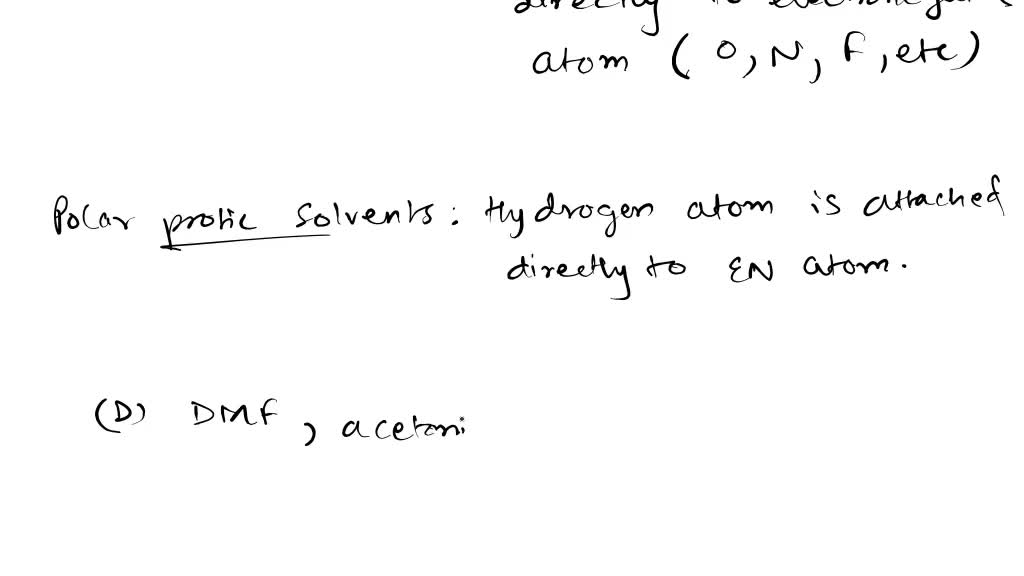 directly to
atom ( O, N, F, etc)
Polar protic solvents : Hydrogen atom is attached
directly to EN atom.
(D) DMF , acetoni